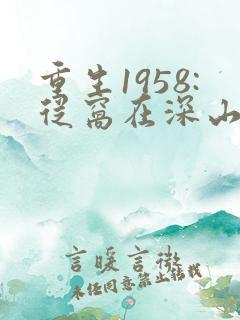 重生1958:
从窝在深山
言暖言微
未经同意禁止转载